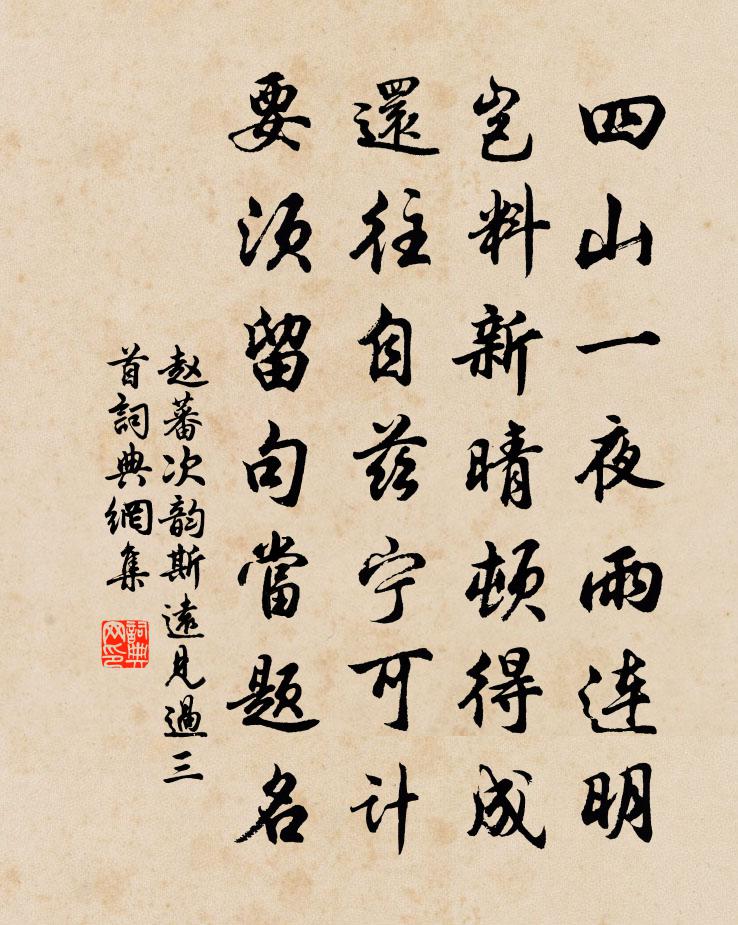 四山一夜雨连明
岂料新晴顿得成
還往自兹宁可计
要须留句當题名
赵蕃次韵斯遠見過三
首詞典網集
詞典
网印